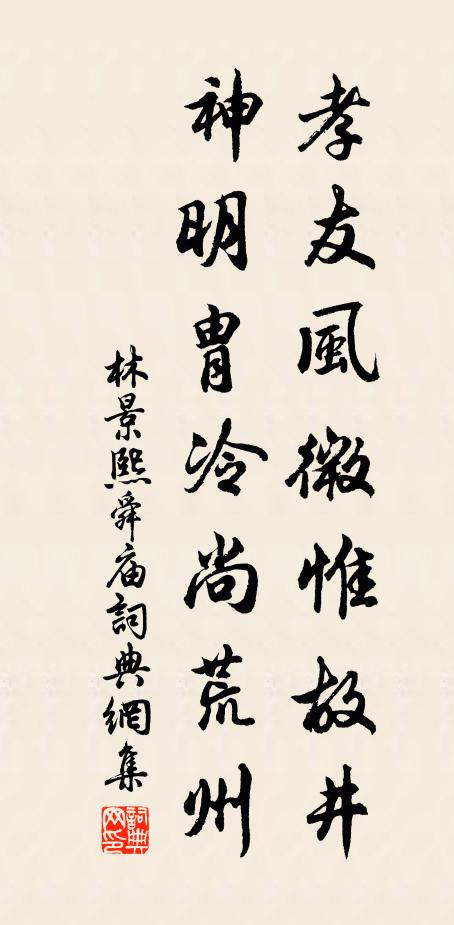 孝友風微惟故井
神明胄冷尚荒州
林景熙舜庙詞典網集
詞典网印